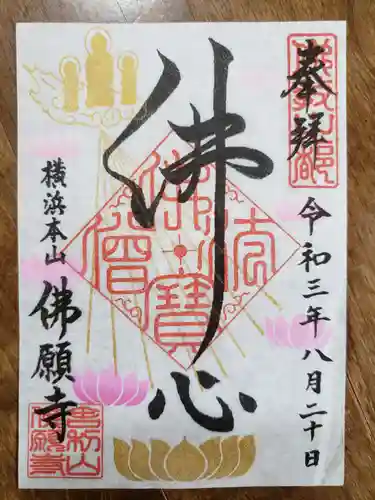 奉拝
令和三年八月二十日
佛心
佛法僧寳
横浜本山
佛願寺